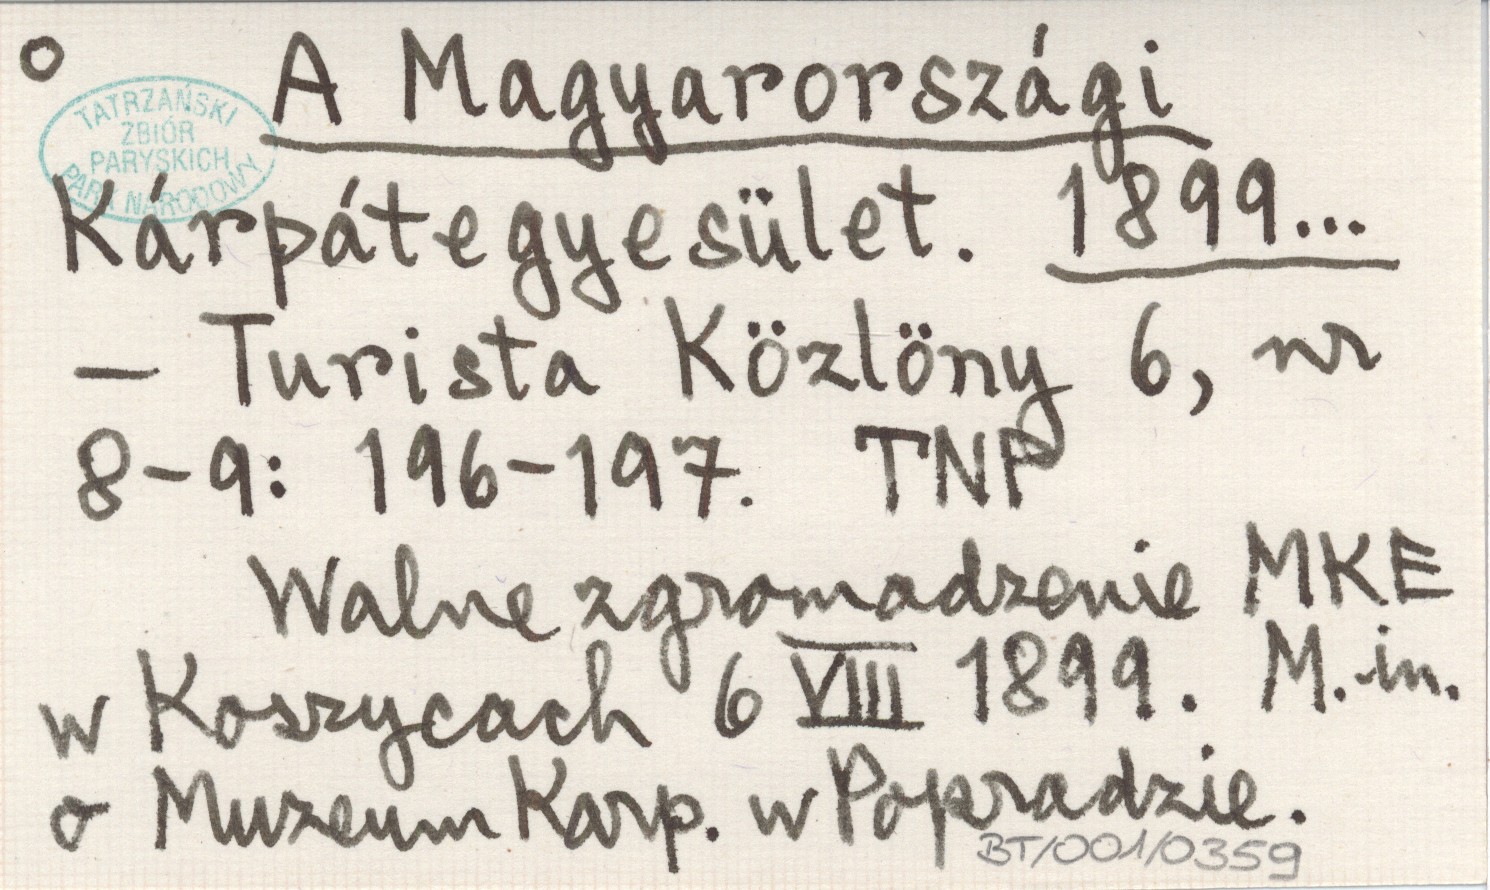 o A Magyarországi
TATRZAŃSKI
ZBIÓR
PARYSKICH
PARK NARODOWY
Kárpátegyesület. 1899...
— Turista Közlöny 6, nr
8-9: 196-197. TNP
Walne zgromadzenie MKE
w Koszycach 6 VIII 1899. M.in.
o Muzeum Karp. w Popradzie.
BT/001/0359